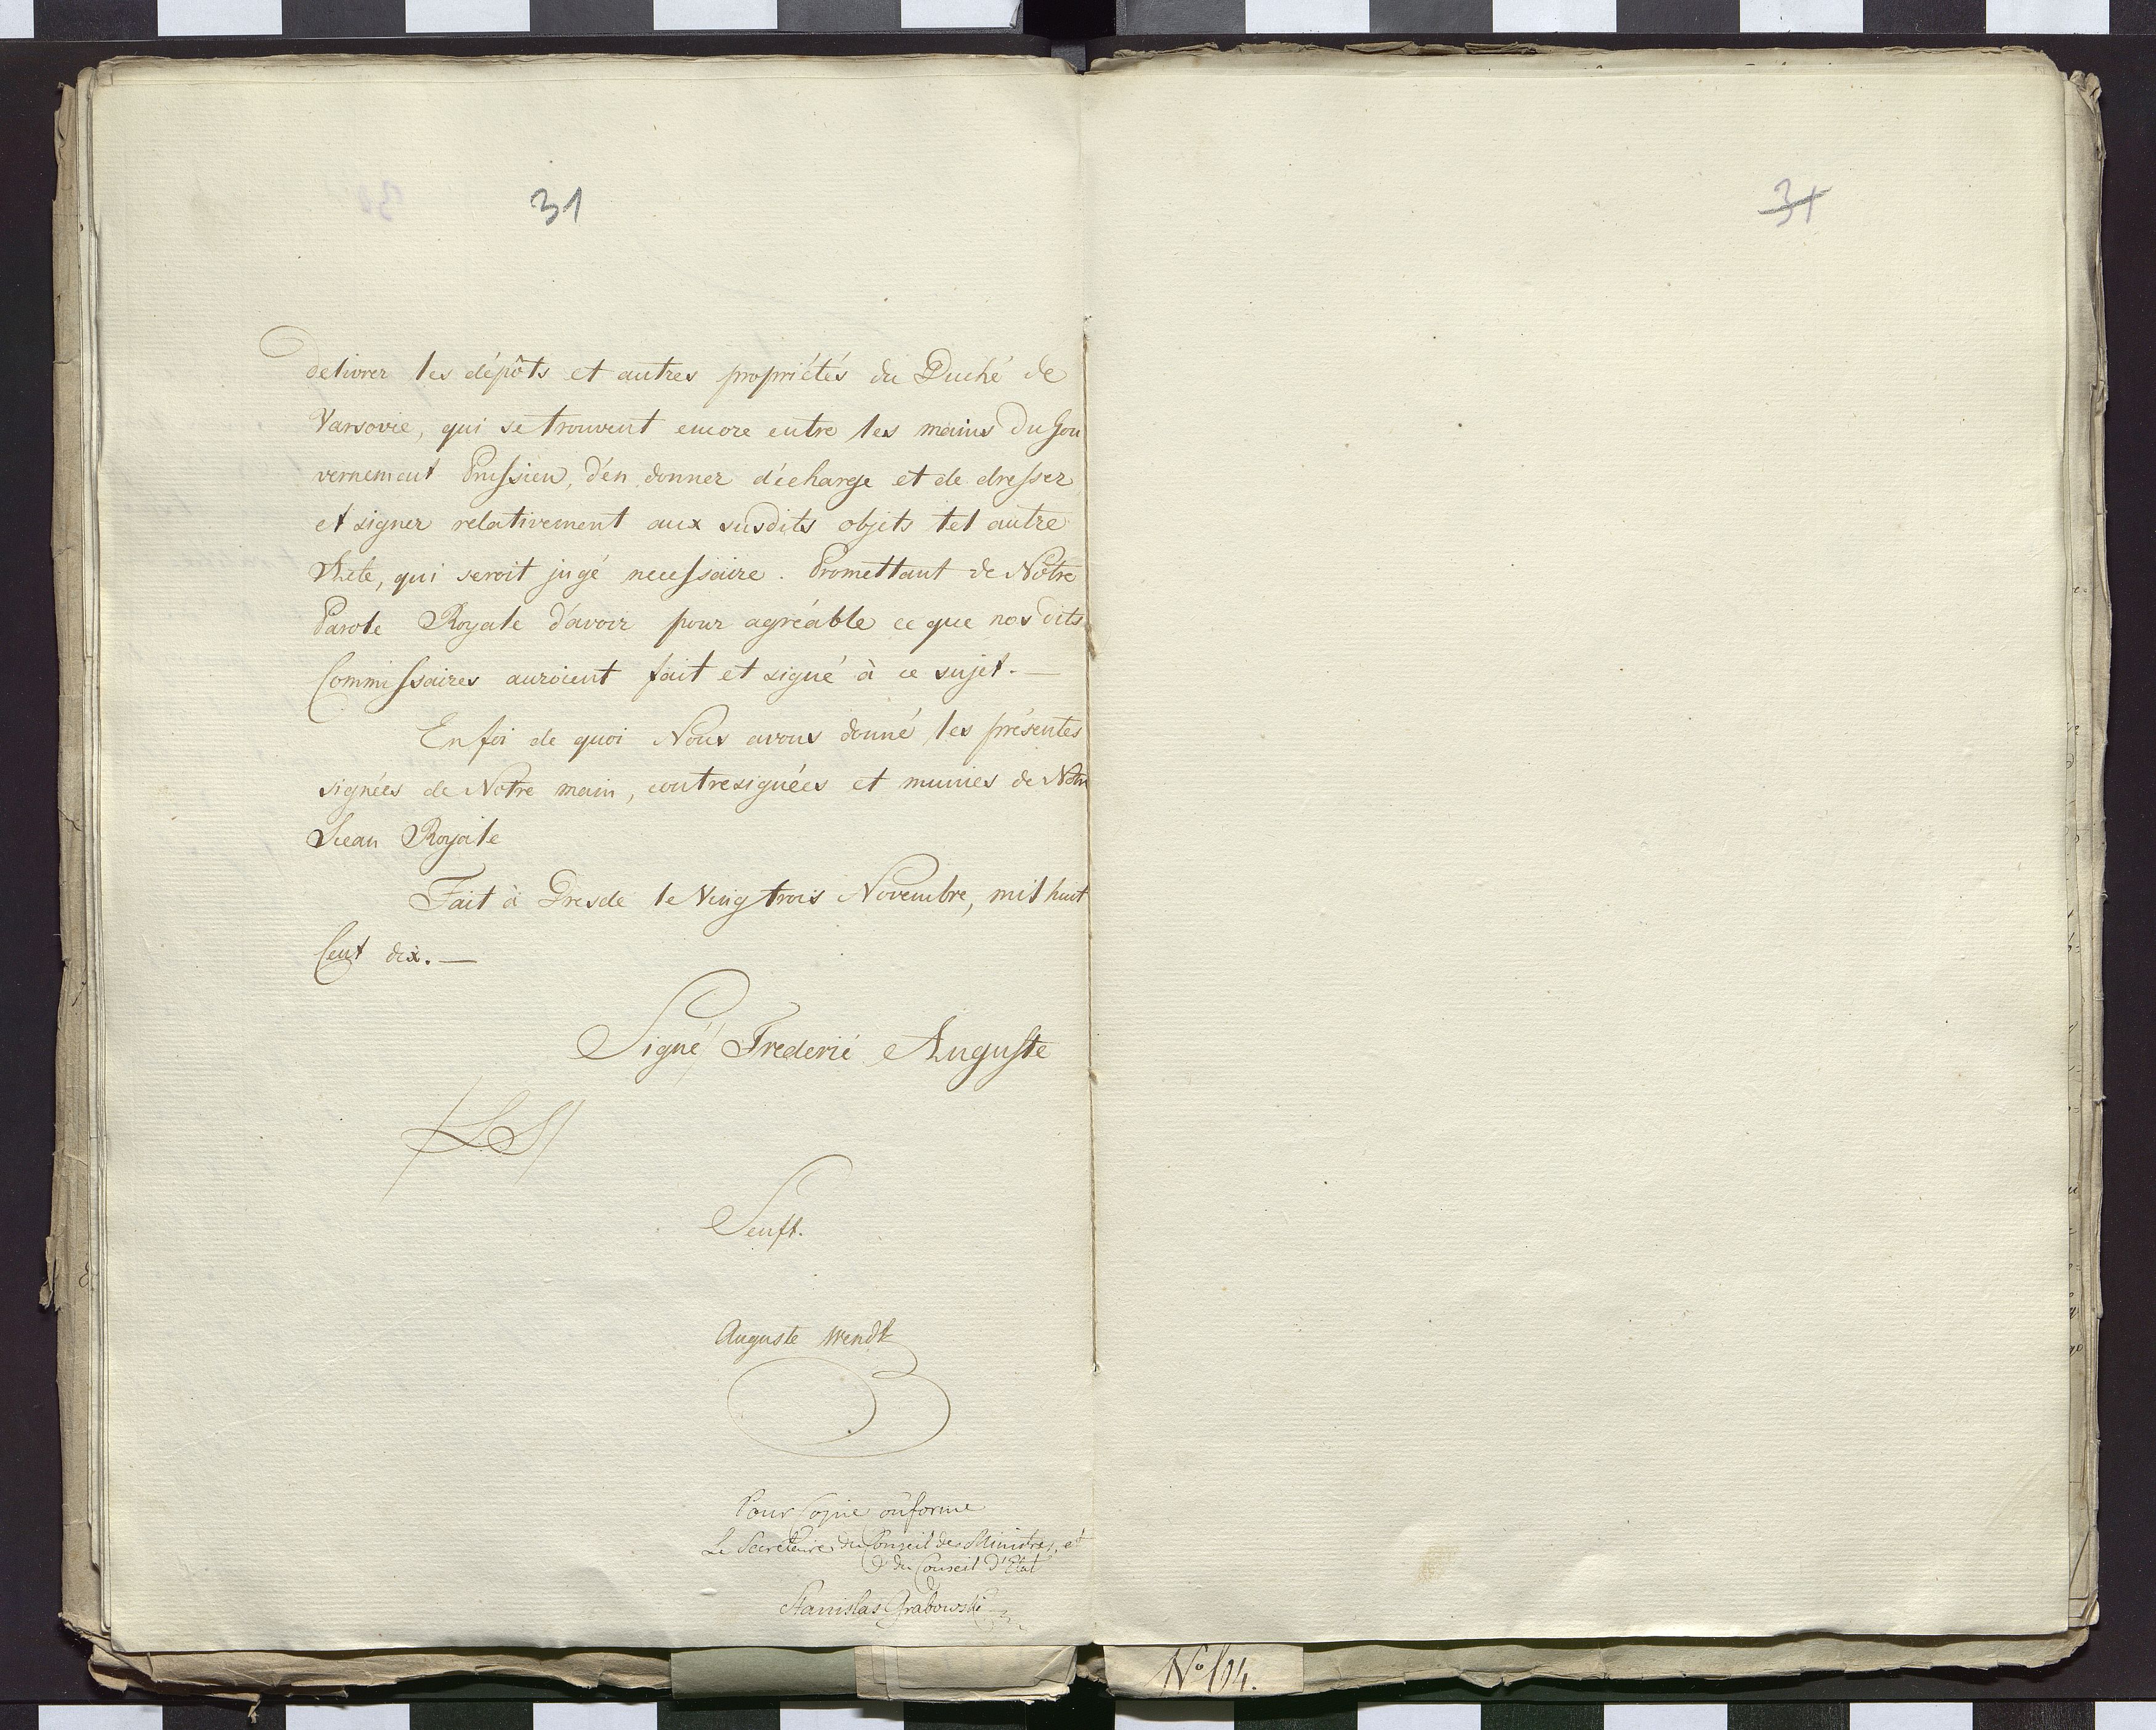 31
31
delivrer les dépôts et autres propriétés du Duché de
Varsovie, qui se trouvent encore entre les mains du Gou
vernement Prussien, d'en donner décharge et de dresser
et signer relativement aux susdits objets tel autre
Acte, qui seroit jugé necessaire. Promettant de Notre
Parole Royale d'avoir pour agréable ce que nos dits
Commissaires auroient fait et signé à ce sujet. —
En foi de quoi Nous avons donné les présentes
signées de Notre main, contresignées et munies de Notre
Sceau Royale
Fait à Dresde le Vingtrois Novembre, mil huit
Cent dix. —
Signé Frederic Auguste
/L.S/
Senft.
Auguste Wendt
Pour Copie conforme
Le Secretaire du Conseil des Ministres, et
du Conseil d'Etat
Stanislas Grabowski
No 104.